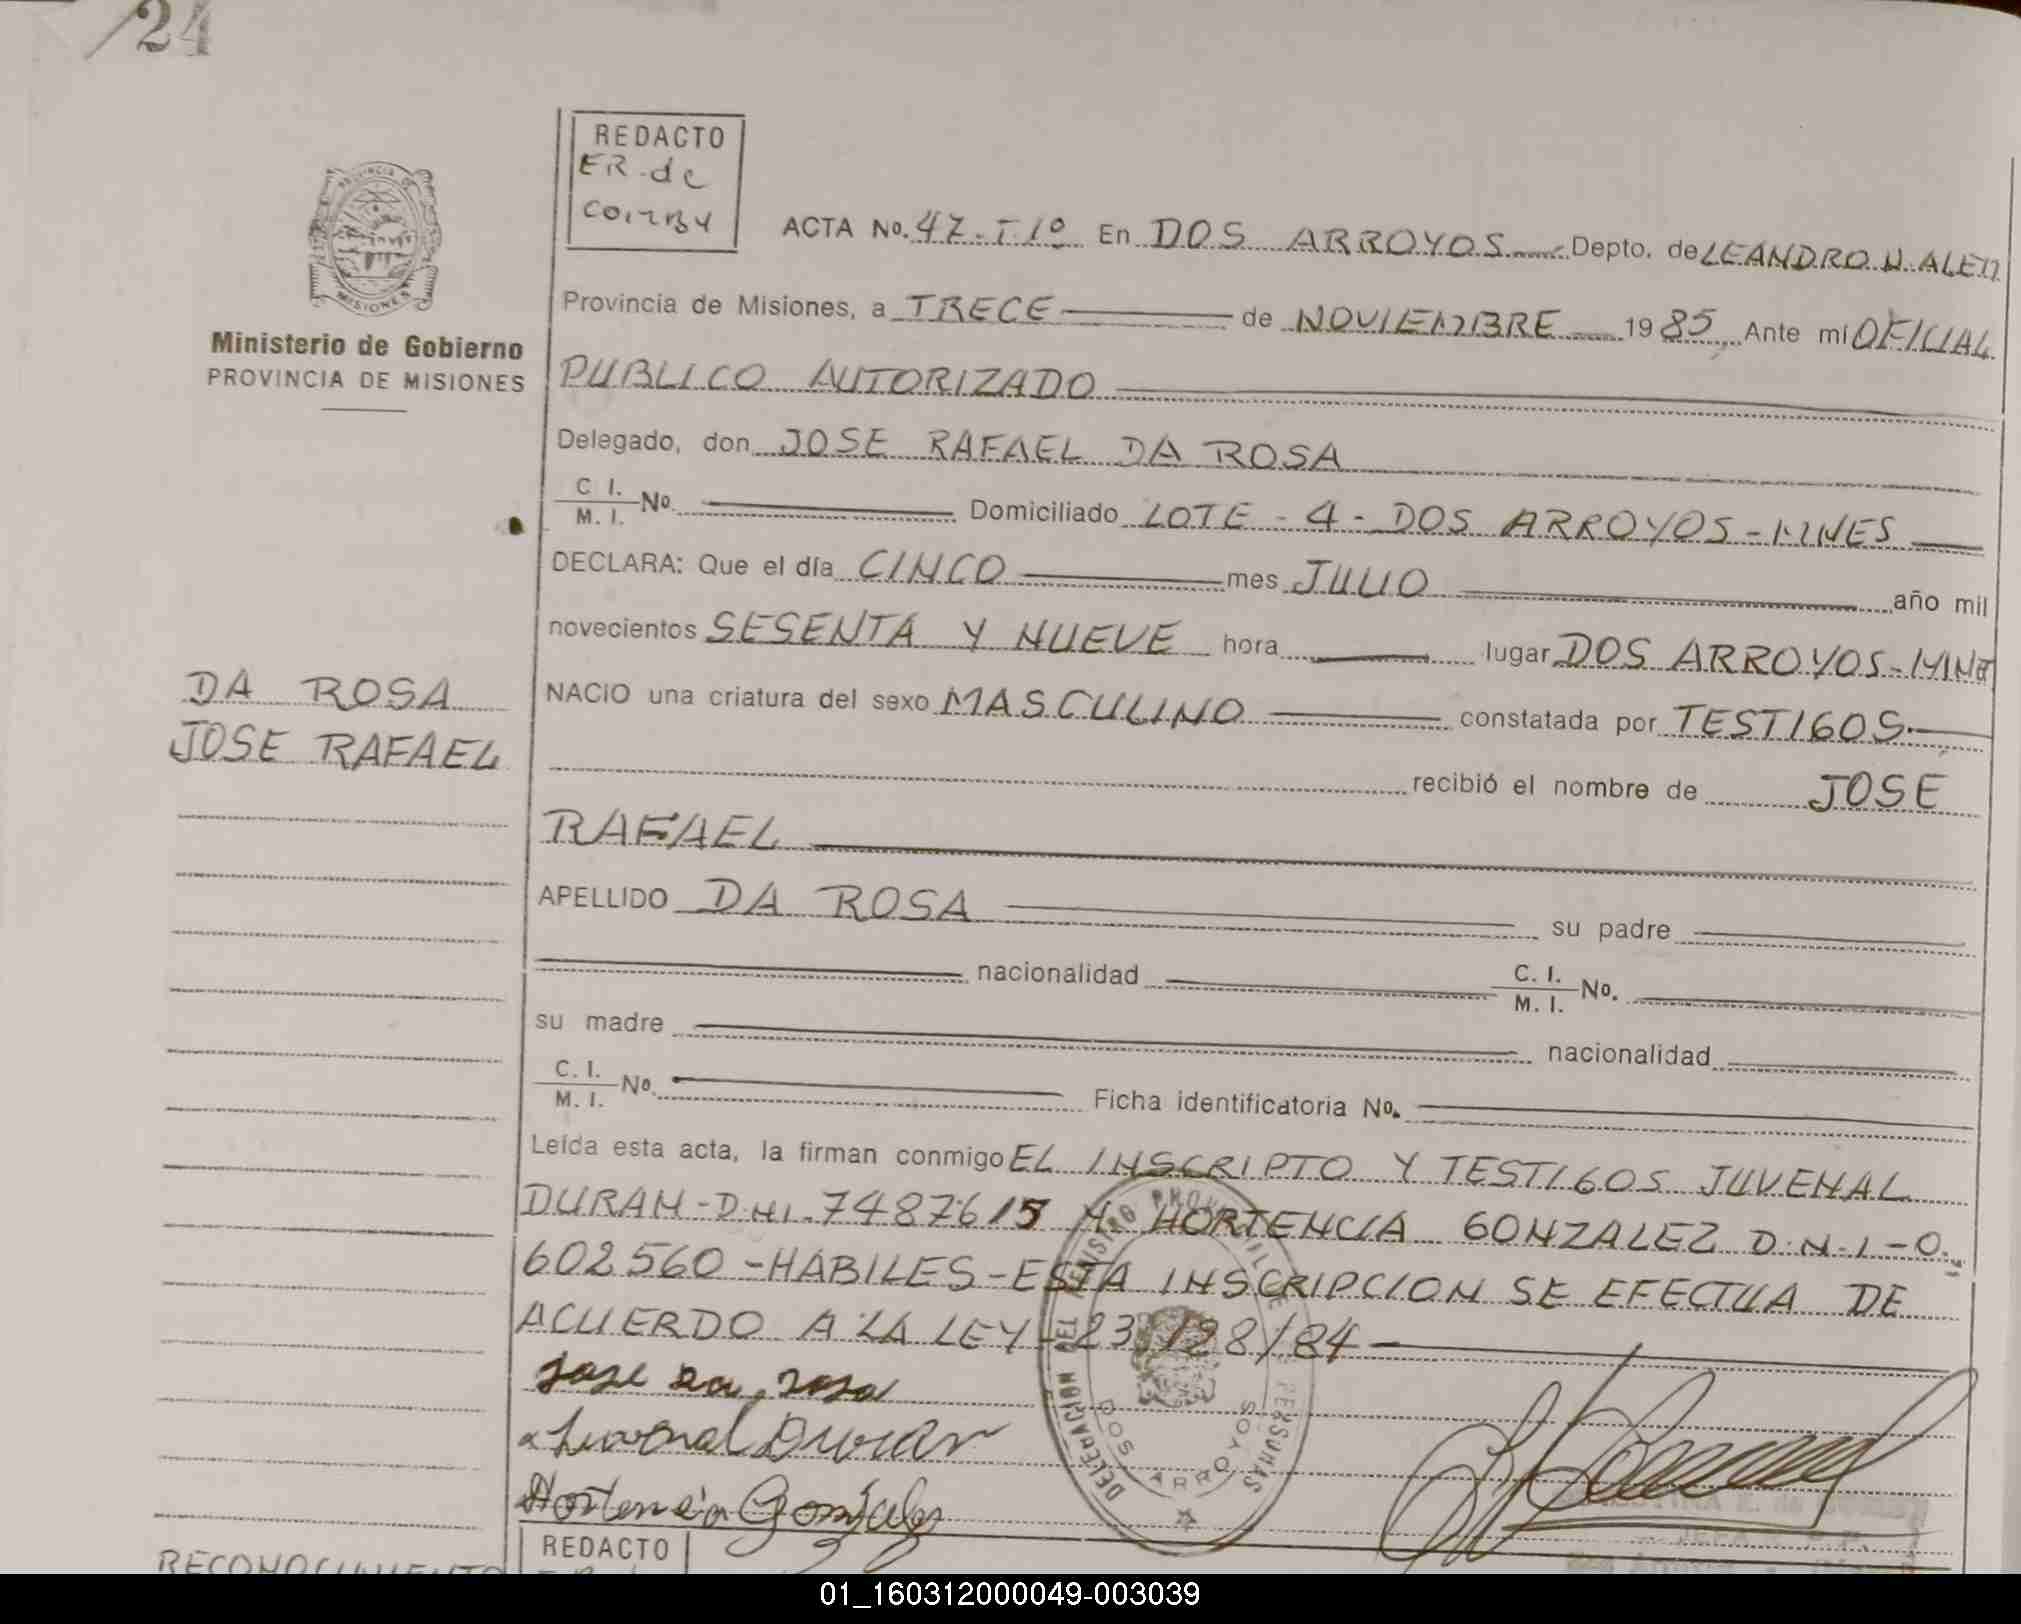 /24
REDACTO
ER de
ACTA No. 47-T-1º En DOS ARROYOS Depto. de LEANDRO N. ALEM
PROVINCIA DE MISIONES
Ministerio de Gobierno
PROVINCIA DE MISIONES
Provincia de Misiones, a TRECE de NOVIEMBRE 1985 Ante mi OFICIAL
PUBLICO AUTORIZADO
Delegado, don JOSE RAFAEL DA ROSA
C I. / M. I. No. Domiciliado LOTE - 4 - DOS ARROYOS - MNES
DECLARA: Que el día CINCO mes JULIO año mil
novecientos SESENTA Y NUEVE hora lugar DOS ARROYOS -
NACIO una criatura del sexo MASCULINO constatada por TESTIGOS
DA ROSA
JOSE RAFAEL
recibió el nombre de JOSE
RAFAEL
APELLIDO DA ROSA su padre
nacionalidad C. I. / M. I. No.
su madre nacionalidad
C. I. / M. I. No. Ficha identificatoria No.
Leída esta acta, la firman conmigo EL INSCRIPTO Y TESTIGOS JUVENAL
DURAN - D.NI. 7487615 Y HORTENCIA GONZALEZ D.N.I - 0.
602560 - HABILES - ESTA INSCRIPCION SE EFECTUA DE
ACUERDO A LA LEY - 23.128/84
Jose da rosa
Juvenal Duran
Hortencia Gonzales
DELEGACION DEL REGISTRO PROVINCIAL DE PERSONAS
DOS ARROYOS
REDACTO
RECONOCIMIENTO
01_160312000049-003039